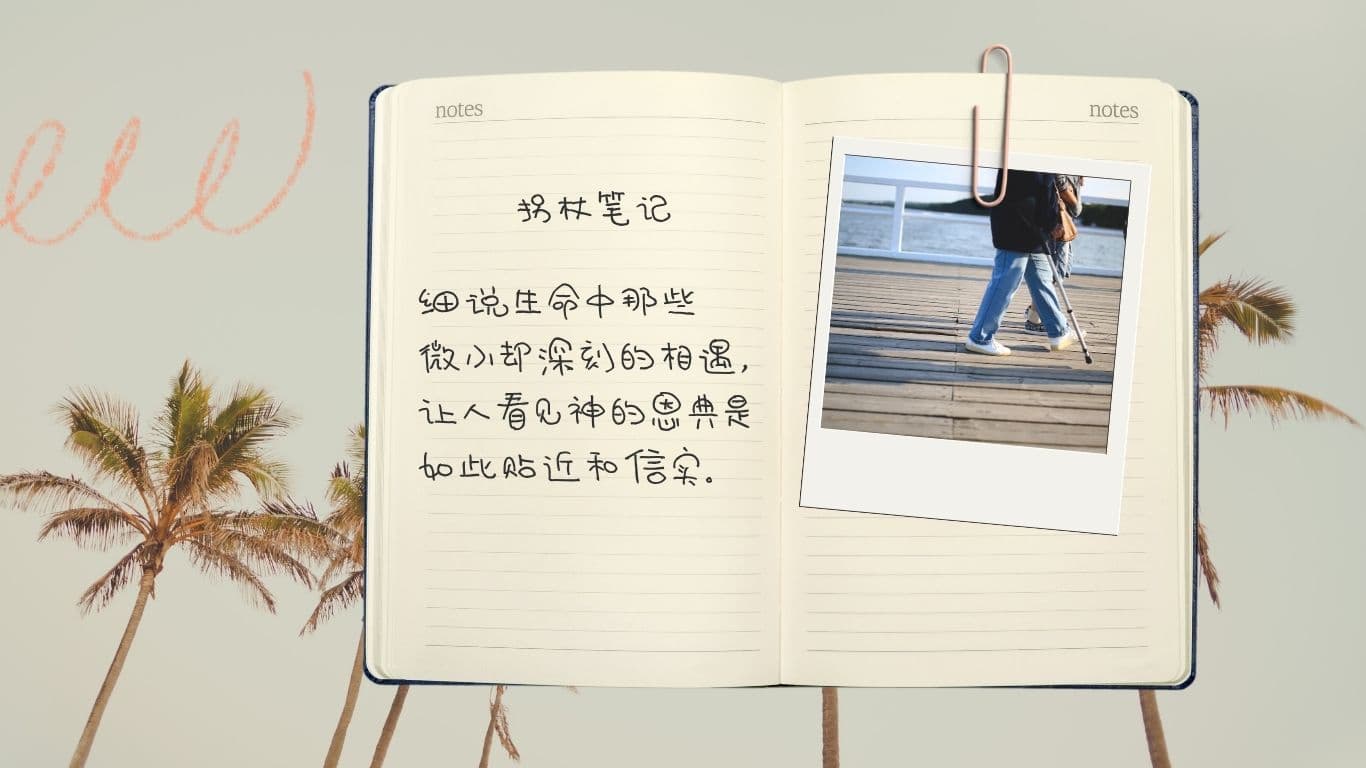 notes
拐杖笔记
细说生命中那些
微小却深刻的相遇，
让人看见神的恩典是
如此贴近和信实。
notes